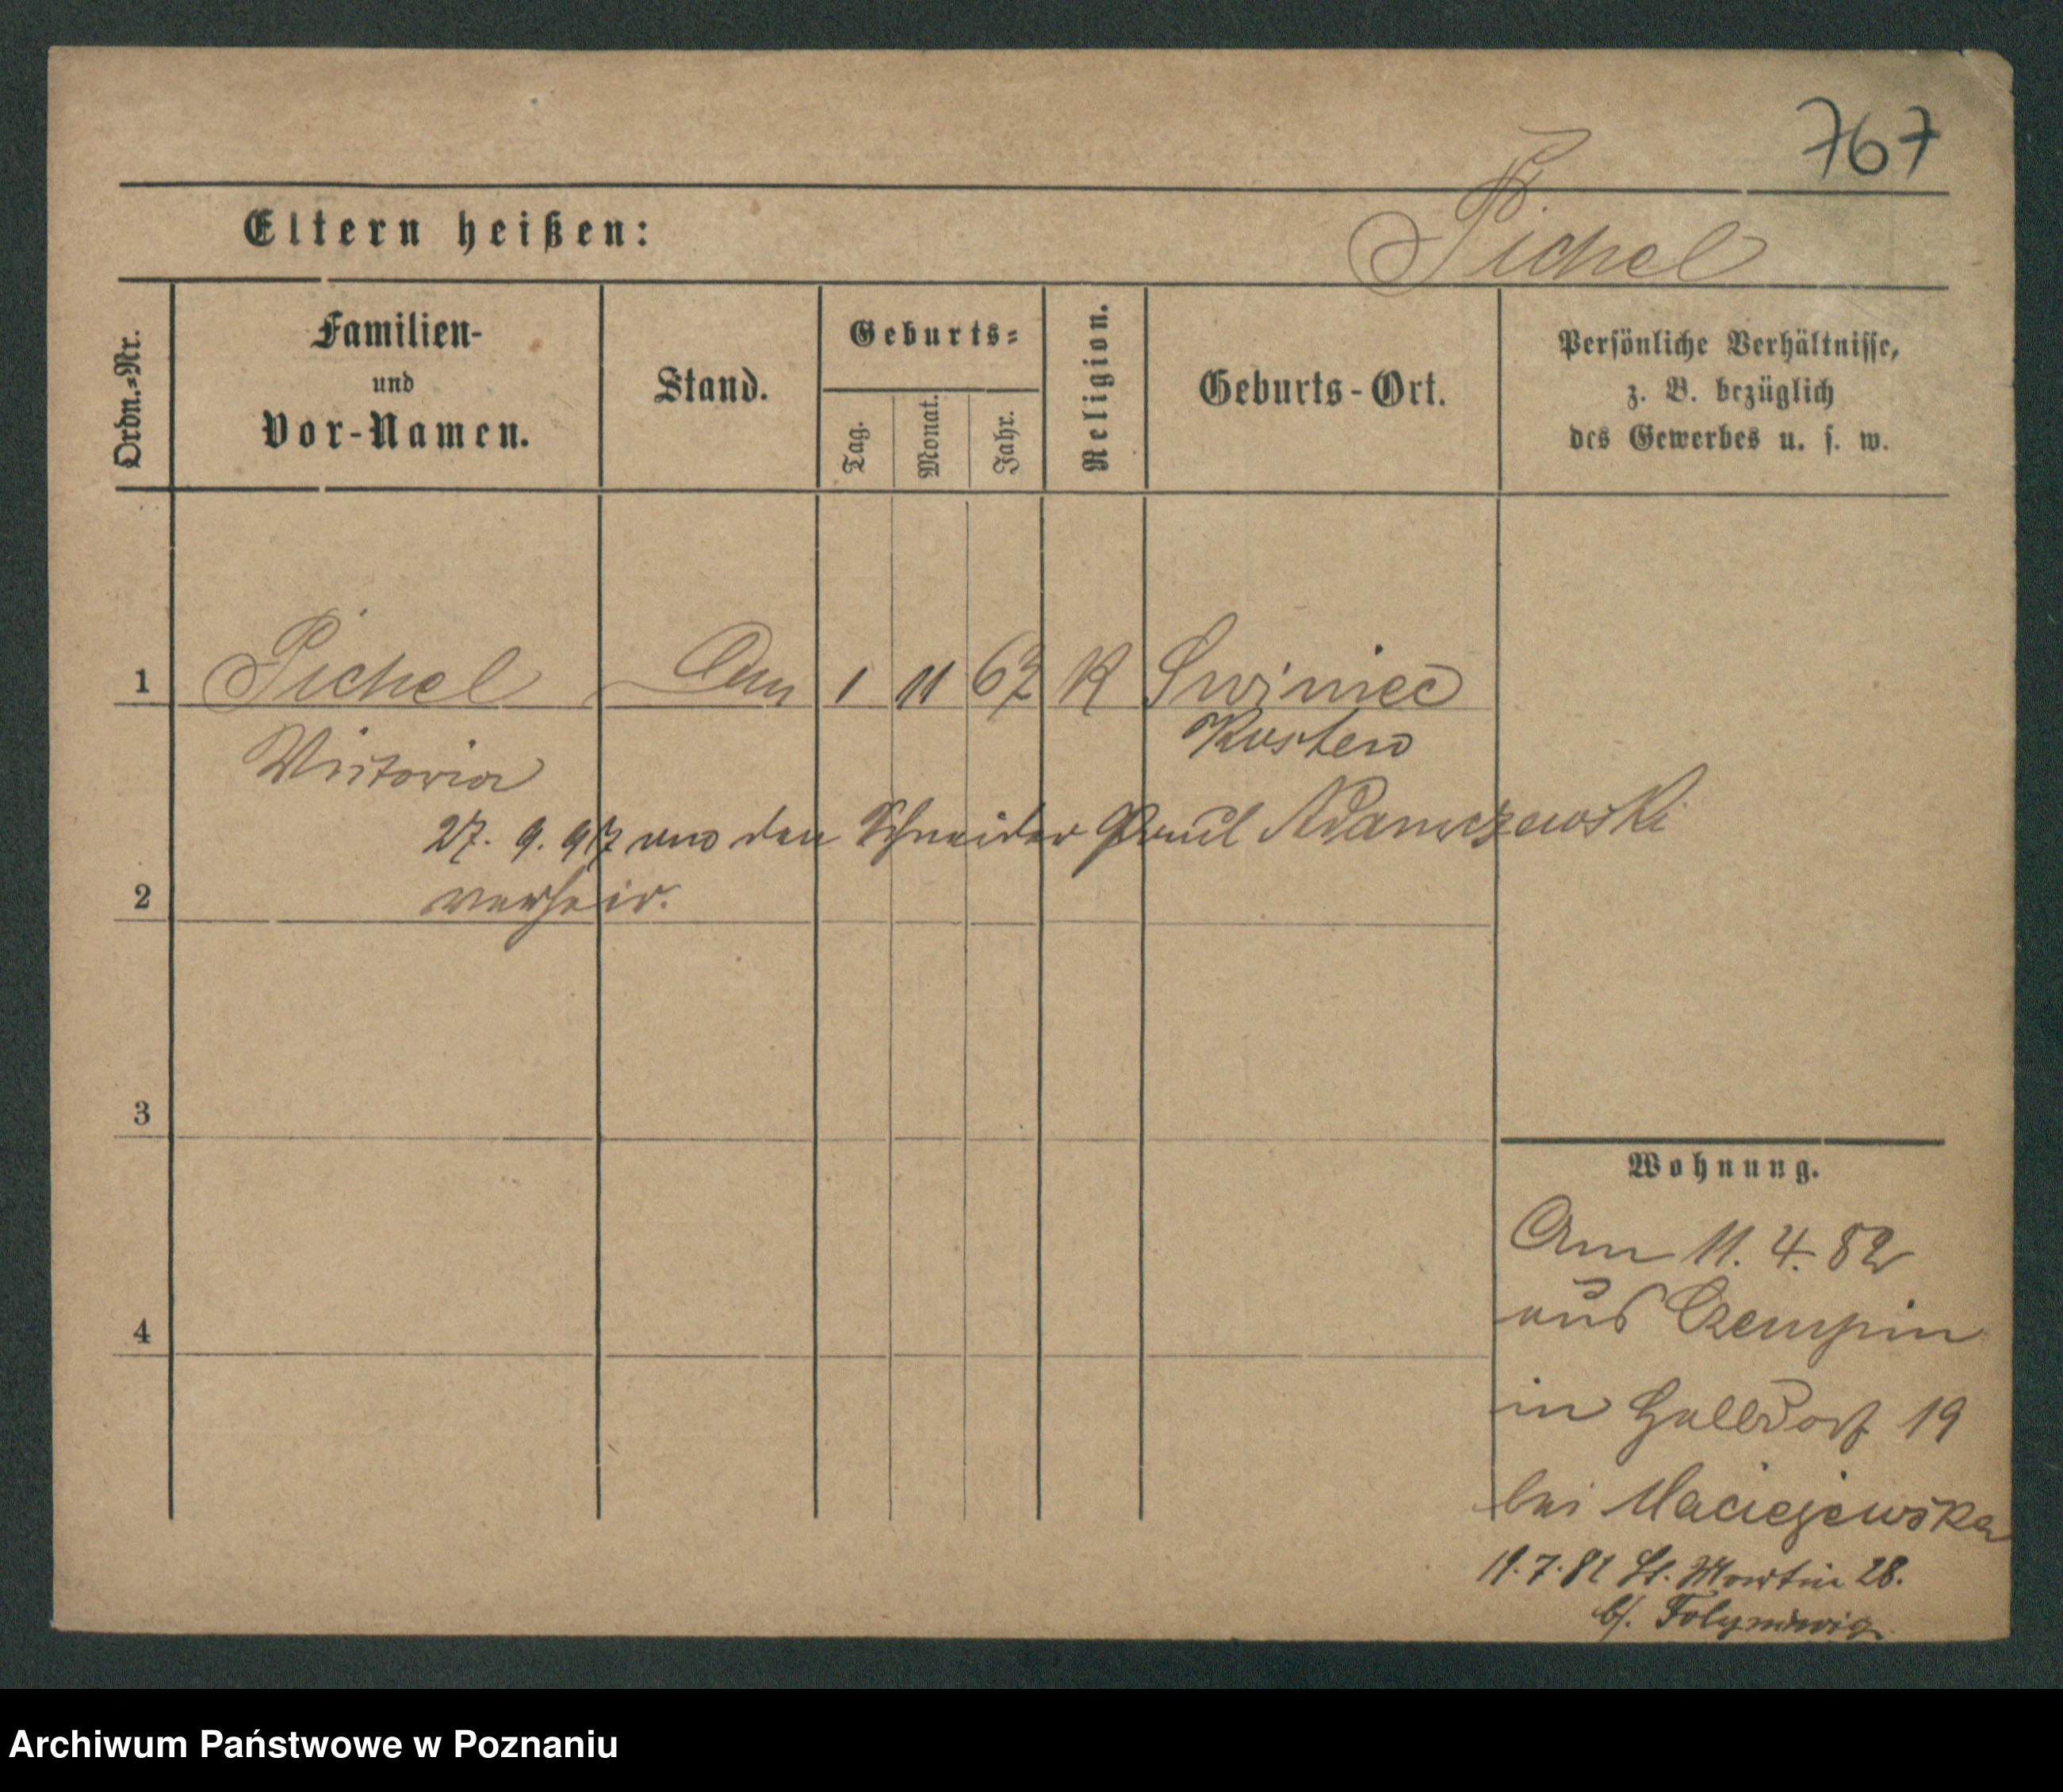 767
Eltern heißen:
Pichel
Ordn.-Nr.
Familien-
und
Vor-Namen.
Stand.
Geburts-
Tag.
Monat.
Jahr.
Religion.
Geburts-Ort.
Persönliche Verhältnisse,
z. B. bezüglich
des Gewerbes u. s. w.
1 Pichel 1 11 K Swiniec
Kosten
Victoria
27. 9. den Schneider Paul Adamczewski
2 verheir.
3
Wohnung.
Am 11. 4. 82
aus Czempin
4
in Halldorf 19
bei Maciejewska
19. 7. 82 St. Martin 28.
b/.
Archiwum Państwowe w Poznaniu